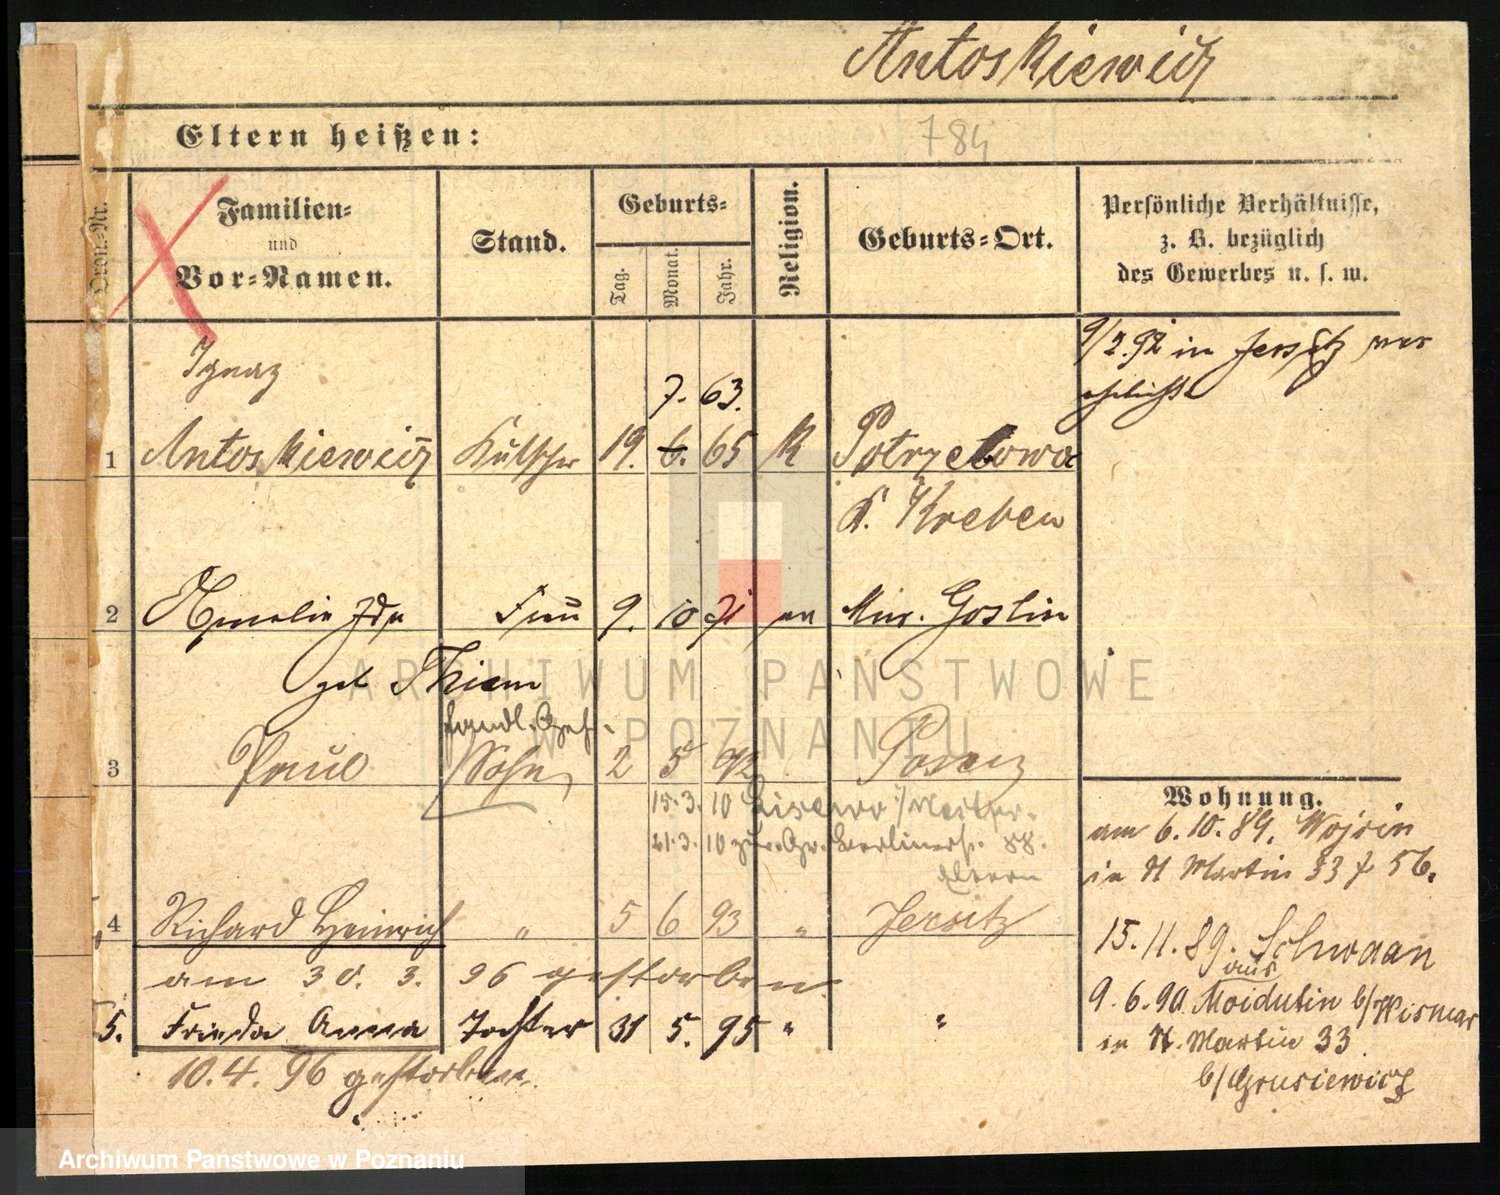 Antoskiewicz
Eltern heißen:
784
Ordn.-Nr.
Familien-
und
Vor-Namen.
Stand.
Geburts-
Tag.
Monat.
Jahr.
Religion.
Geburts-Ort.
Persönliche Verhältnisse,
z. B. bezüglich
des Gewerbes u. s. w.
9/2.92 in Jersitz ver
ehelicht
Ignaz
7. 63.
1 Antoskiewicz Kutscher 19. 6. 65 K Potrzebowo
K. Kreben
2 Amalie Ida Frau 9. 10 71 ev Kr. Gostin
geb Thiem
Handl. Geh.
3 Paul Sohn 2 5 92 Posen
15.3.10
21.3.10 zur. Gr. Berlinerstr. 88.
Eltern
4 Richard Heinrich " 5 6 93 " Jersitz
am 30. 3. 96 gestorben
5. Frieda Anna Tochter 31 5. 95 " "
10.4. 96 gestorben
Wohnung.
am 6.10.89.
in St Martin 33 56.
15.11.89. Schwaan
aus
9.6.90 Moidutin b/Wismar
in St. Martin 33
b/Grusiewicz
ARCHIWUM PAŃSTWOWE
W POZNANIU
Archiwum Państwowe w Poznaniu